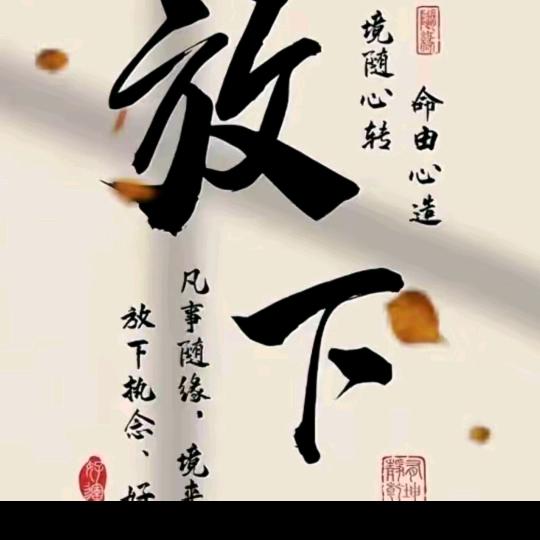 放下
命由心造
境随心转
凡事随缘，境来
放下执念、好
随缘
好运